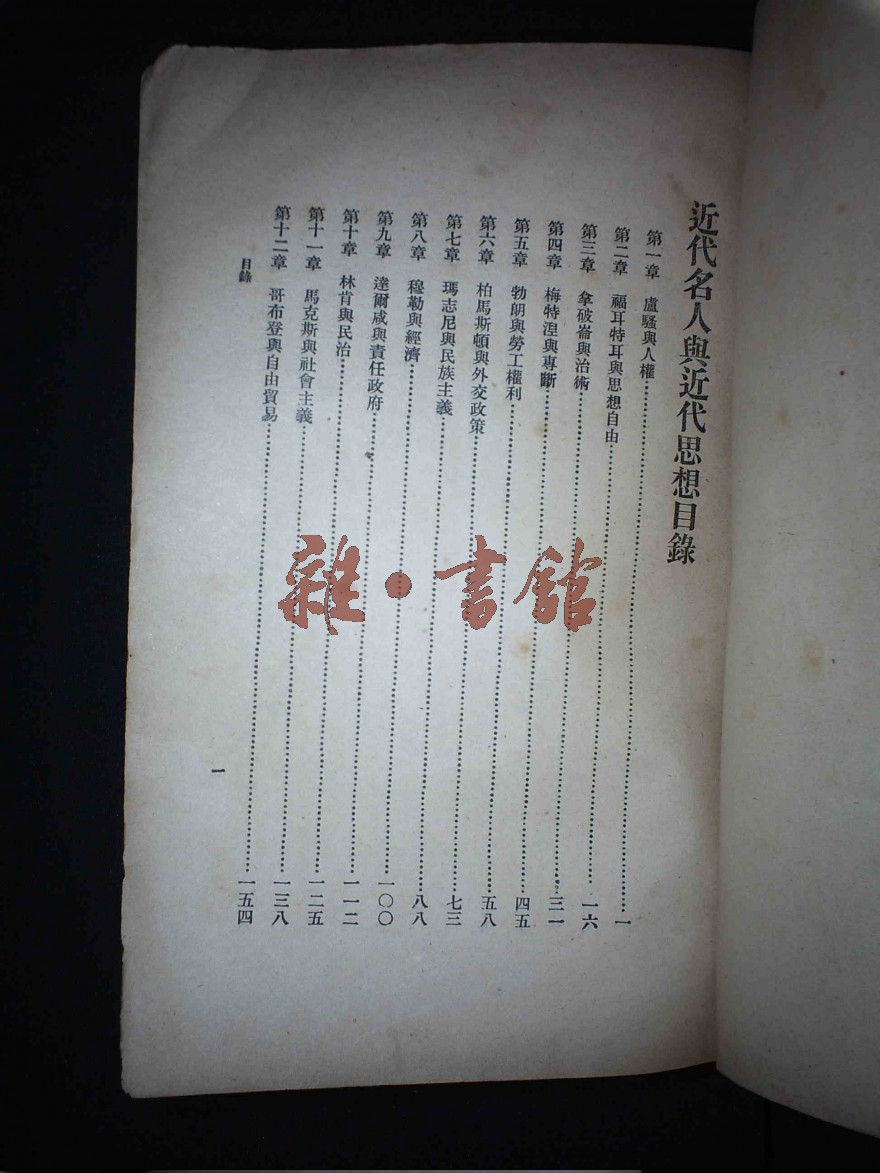 近代名人與近代思想目錄
第一章 盧騷與人權……一
第二章 福耳特耳與思想自由……一六
第三章 拿破崙與治術……三一
第四章 梅特涅與專斷……四五
第五章 勃朗與勞工權利……五八
第六章 柏馬斯頓與外交政策……七三
第七章 瑪志尼與民族主義……八八
第八章 穆勒與經濟……一〇〇
第九章 達爾咸與責任政府……一一二
第十章 林肯與民治……一二五
第十一章 馬克斯與社會主義……一三八
第十二章 哥布登與自由貿易……一五四
目錄
一
雜·書館